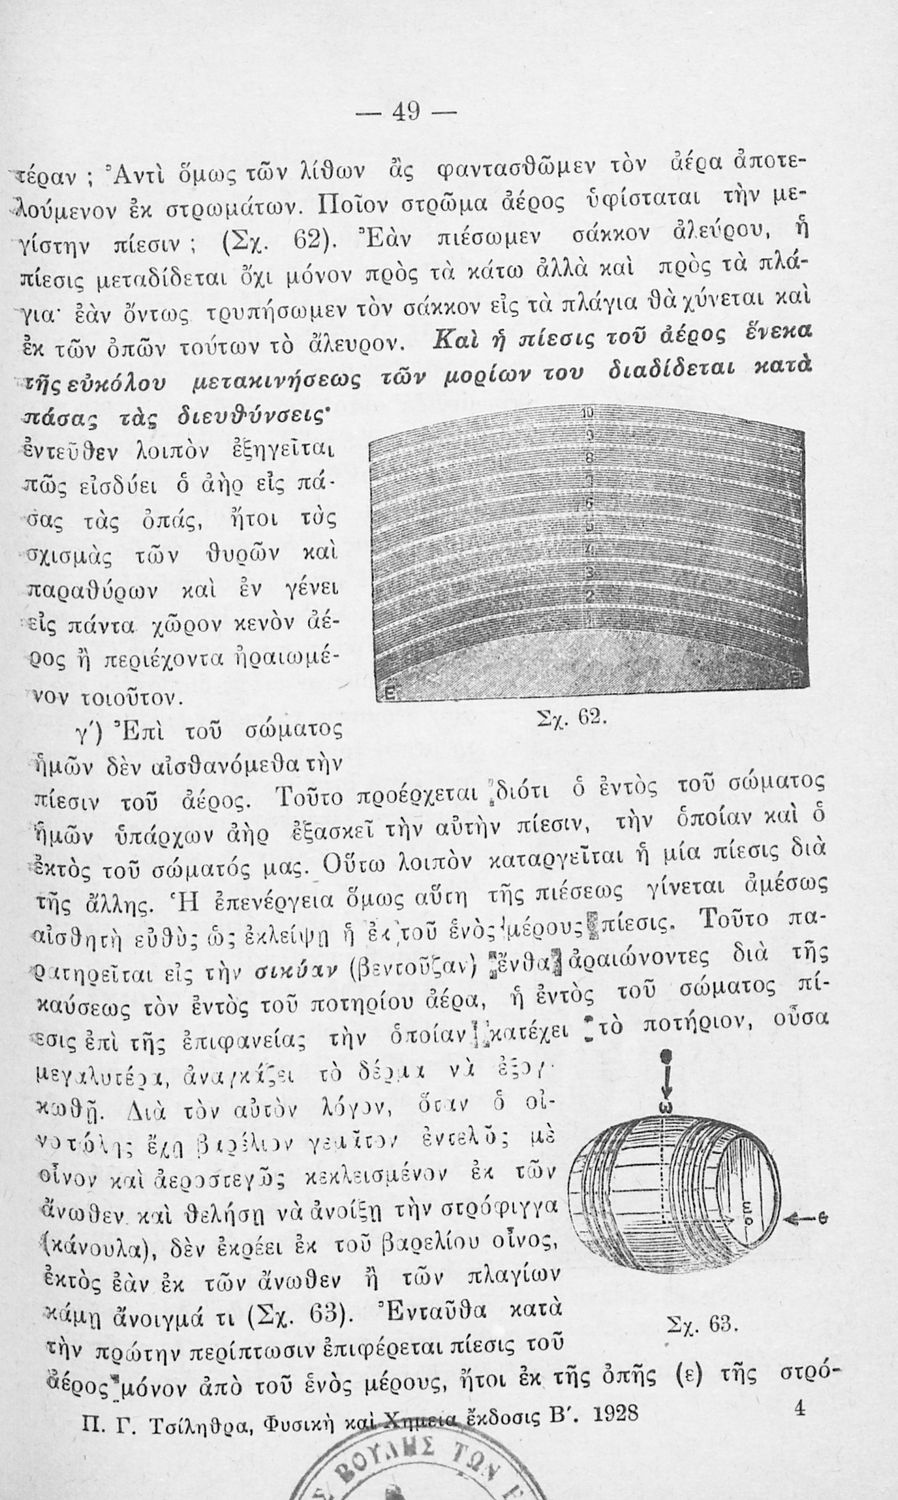 — 49 —
τέραν ; Ἀντὶ ὅμως τῶν λίθων ἂς φαντασθῶμεν τὸν ἀέρα ἀποτε-
λούμενον ἐκ στρωμάτων. Ποῖον στρῶμα ἀέρος ὑφίσταται τὴν με-
γίστην πίεσιν ; (Σχ. 62). Ἐὰν πιέσωμεν σάκκον ἀλεύρου, ἡ
πίεσις μεταδίδεται ὄχι μόνον πρὸς τὰ κάτω ἀλλὰ καὶ πρὸς τὰ πλά-
για· ἐὰν ὄντως τρυπήσωμεν τὸν σάκκον εἰς τὰ πλάγια θὰ χύνεται καὶ
ἐκ τῶν ὀπῶν τούτων τὸ ἄλευρον. Καὶ ἡ πίεσις τοῦ ἀέρος ἕνεκα
τῆς εὐκόλου μετακινήσεως τῶν μορίων του διαδίδεται κατὰ
πάσας τὰς διευθύνσεις·
ἐντεῦθεν λοιπὸν ἐξηγεῖται
πῶς εἰσδύει ὁ ἀὴρ εἰς πά-
σας τὰς ὀπάς, ἤτοι τὰς
σχισμὰς τῶν θυρῶν καὶ
παραθύρων καὶ ἐν γένει
εἰς πάντα χῶρον κενὸν ἀέ-
ρος ἢ περιέχοντα ἠραιωμέ-
νον τοιοῦτον.
10
9
8
7
6
5
4
3
2
1
E
E
Σχ. 62.
γ΄) Ἐπὶ τοῦ σώματος
ἡμῶν δὲν αἰσθανόμεθα τὴν
πίεσιν τοῦ ἀέρος. Τοῦτο προέρχεται διότι ὁ ἐντὸς τοῦ σώματος
ἡμῶν ὑπάρχων ἀὴρ ἐξασκεῖ τὴν αὐτὴν πίεσιν, τὴν ὁποίαν καὶ ὁ
ἐκτὸς τοῦ σώματός μας. Οὕτω λοιπὸν καταργεῖται ἡ μία πίεσις διὰ
τῆς ἄλλης. Ἡ ἐπενέργεια ὅμως αὕτη τῆς πιέσεως γίνεται ἀμέσως
αἰσθητὴ εὐθὺς ὡς ἐκλείψῃ ἡ ἐκ τοῦ ἑνὸς μέρους πίεσις. Τοῦτο πα-
ρατηρεῖται εἰς τὴν σικύαν (βεντοῦζαν) ἔνθα ἀραιώνοντες διὰ τῆς
καύσεως τὸν ἐντὸς τοῦ ποτηρίου ἀέρα, ἡ ἐντὸς τοῦ σώματος πί-
εσις ἐπὶ τῆς ἐπιφανείας τὴν ὁποίαν κατέχει τὸ ποτήριον, οὖσα
μεγαλυτέρα, ἀναγκάζει τὸ δέρμα νὰ ἐξογ-
κωθῇ. Διὰ τὸν αὐτὸν λόγον, ὅταν ὁ οἰ-
νοπώλης ἔχῃ βαρέλιον γεμᾶτον ἐντελῶς μὲ
οἶνον καὶ ἀεροστεγῶς κεκλεισμένον ἐκ τῶν
ἄνωθεν καὶ θελήσῃ νὰ ἀνοίξῃ τὴν στρόφιγγα
(κάνουλα), δὲν ἐκρέει ἐκ τοῦ βαρελίου οἶνος,
ἐκτὸς ἐὰν ἐκ τῶν ἄνωθεν ἢ τῶν πλαγίων
κάμῃ ἄνοιγμά τι (Σχ. 63). Ἐνταῦθα κατὰ
τὴν πρώτην περίπτωσιν ἐπιφέρεται πίεσις τοῦ
ω
ε
Σχ. 63.
ἀέρος μόνον ἀπὸ τοῦ ἑνὸς μέρους, ἤτοι ἐκ τῆς ὀπῆς (ε) τῆς στρό-
Π. Γ. Τσίληθρα, Φυσικὴ καὶ Χημεία ἔκδοσις Β΄. 1928 4
ΒΟΥΛΗΣ ΤΩΝ